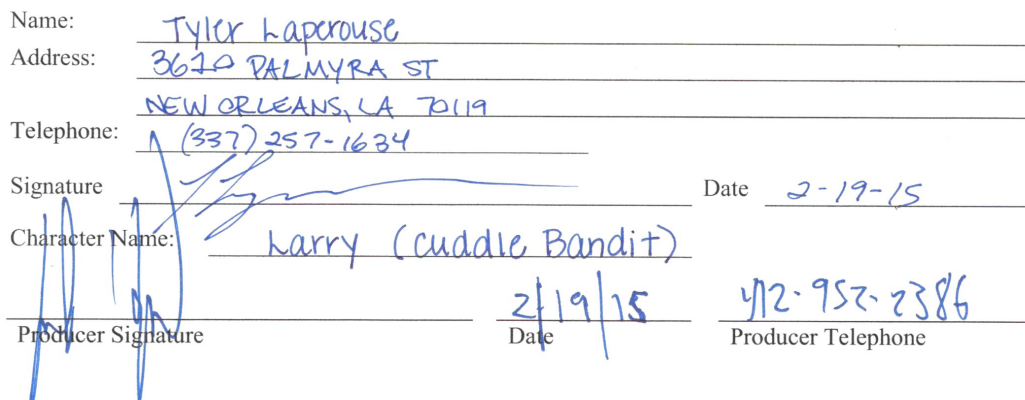 Name: Tyler Laperouse
Address: 3620 PALMYRA ST
NEW ORLEANS, LA 70119
Telephone: (337) 257-1634
Signature Date 2-19-15
Character Name: Larry (cuddle Bandit)
2/19/15 412-952-2386
Producer Signature Date Producer Telephone